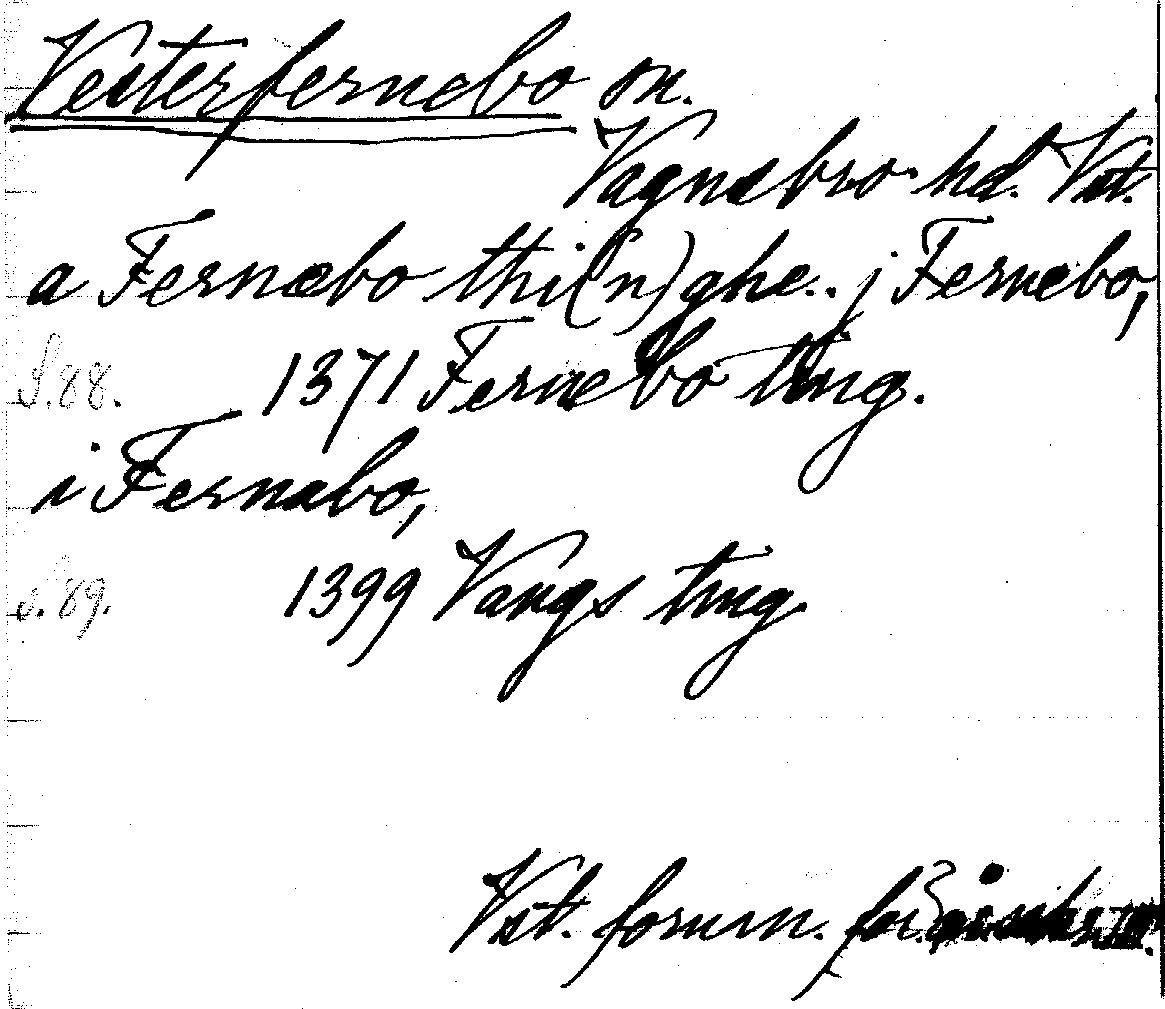 Vesterfernebo sn.
Vagnsbro hd. Vst.
a Fernæbo thi(n)ghe.. j Fernebo,
S.88. 1371 Fernebo ting.
i Fernabo,
s.89. 1399 Vangs ting.
Vst. fornm. för. årsskr. III.